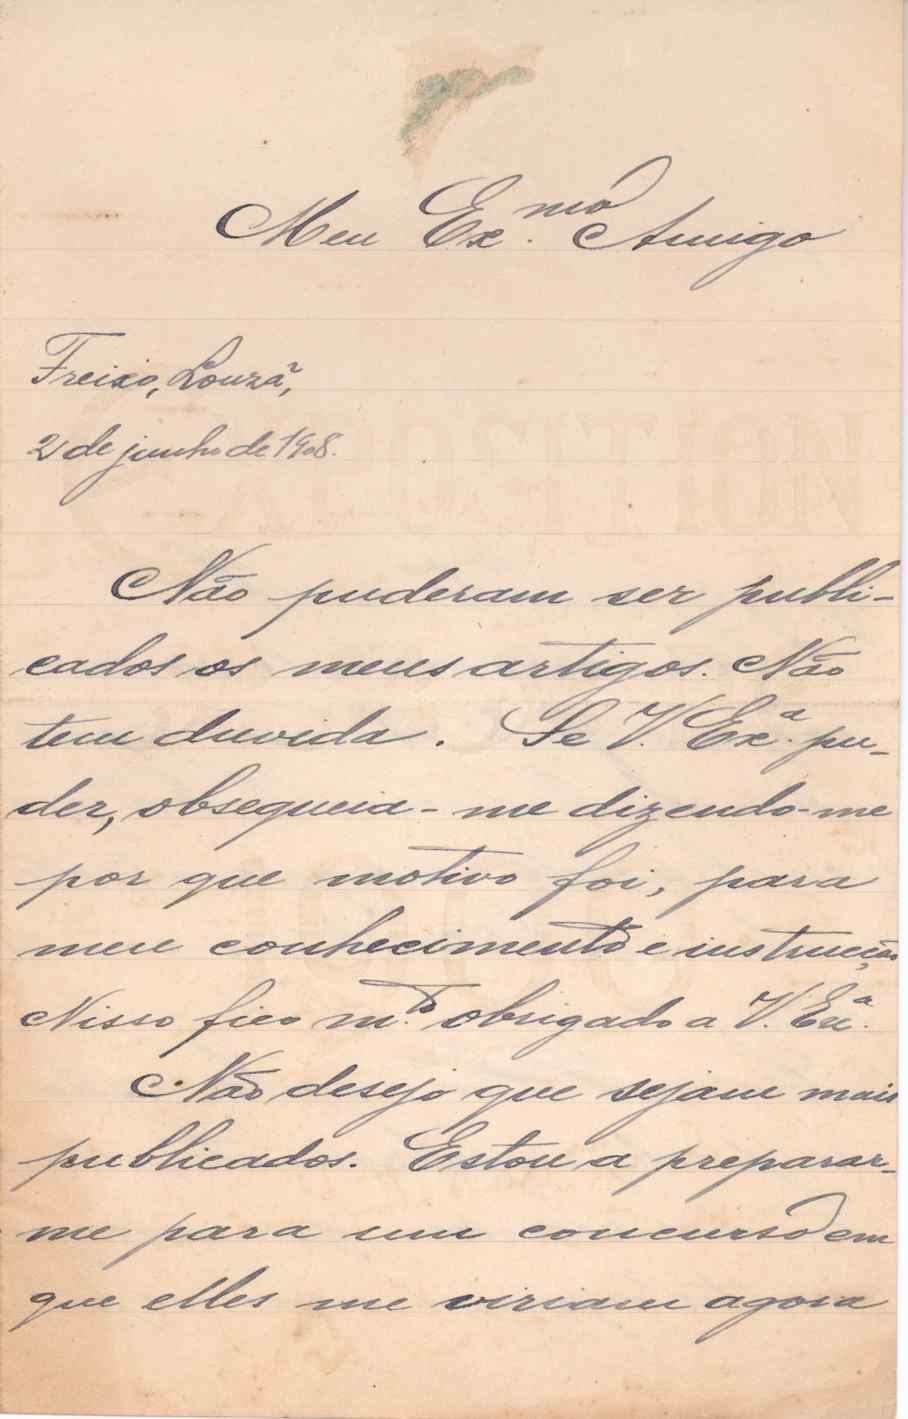 Meu Ex.mo Amigo
Freixo, Louzã,
2 de junho de 1908.
Não puderam ser publi-
cados os meus artigos. Não
tem duvida. Se V. Ex.a pu-
der, obsequeia-me dizendo-me
por que motivo foi, para
meu conhecimento e instrucção
Nisso fico m.to obrigado a V. Ex.a
Não desejo que sejam mais
publicados. Estou a preparar-
me para um concurso em
que elles me viriam agora